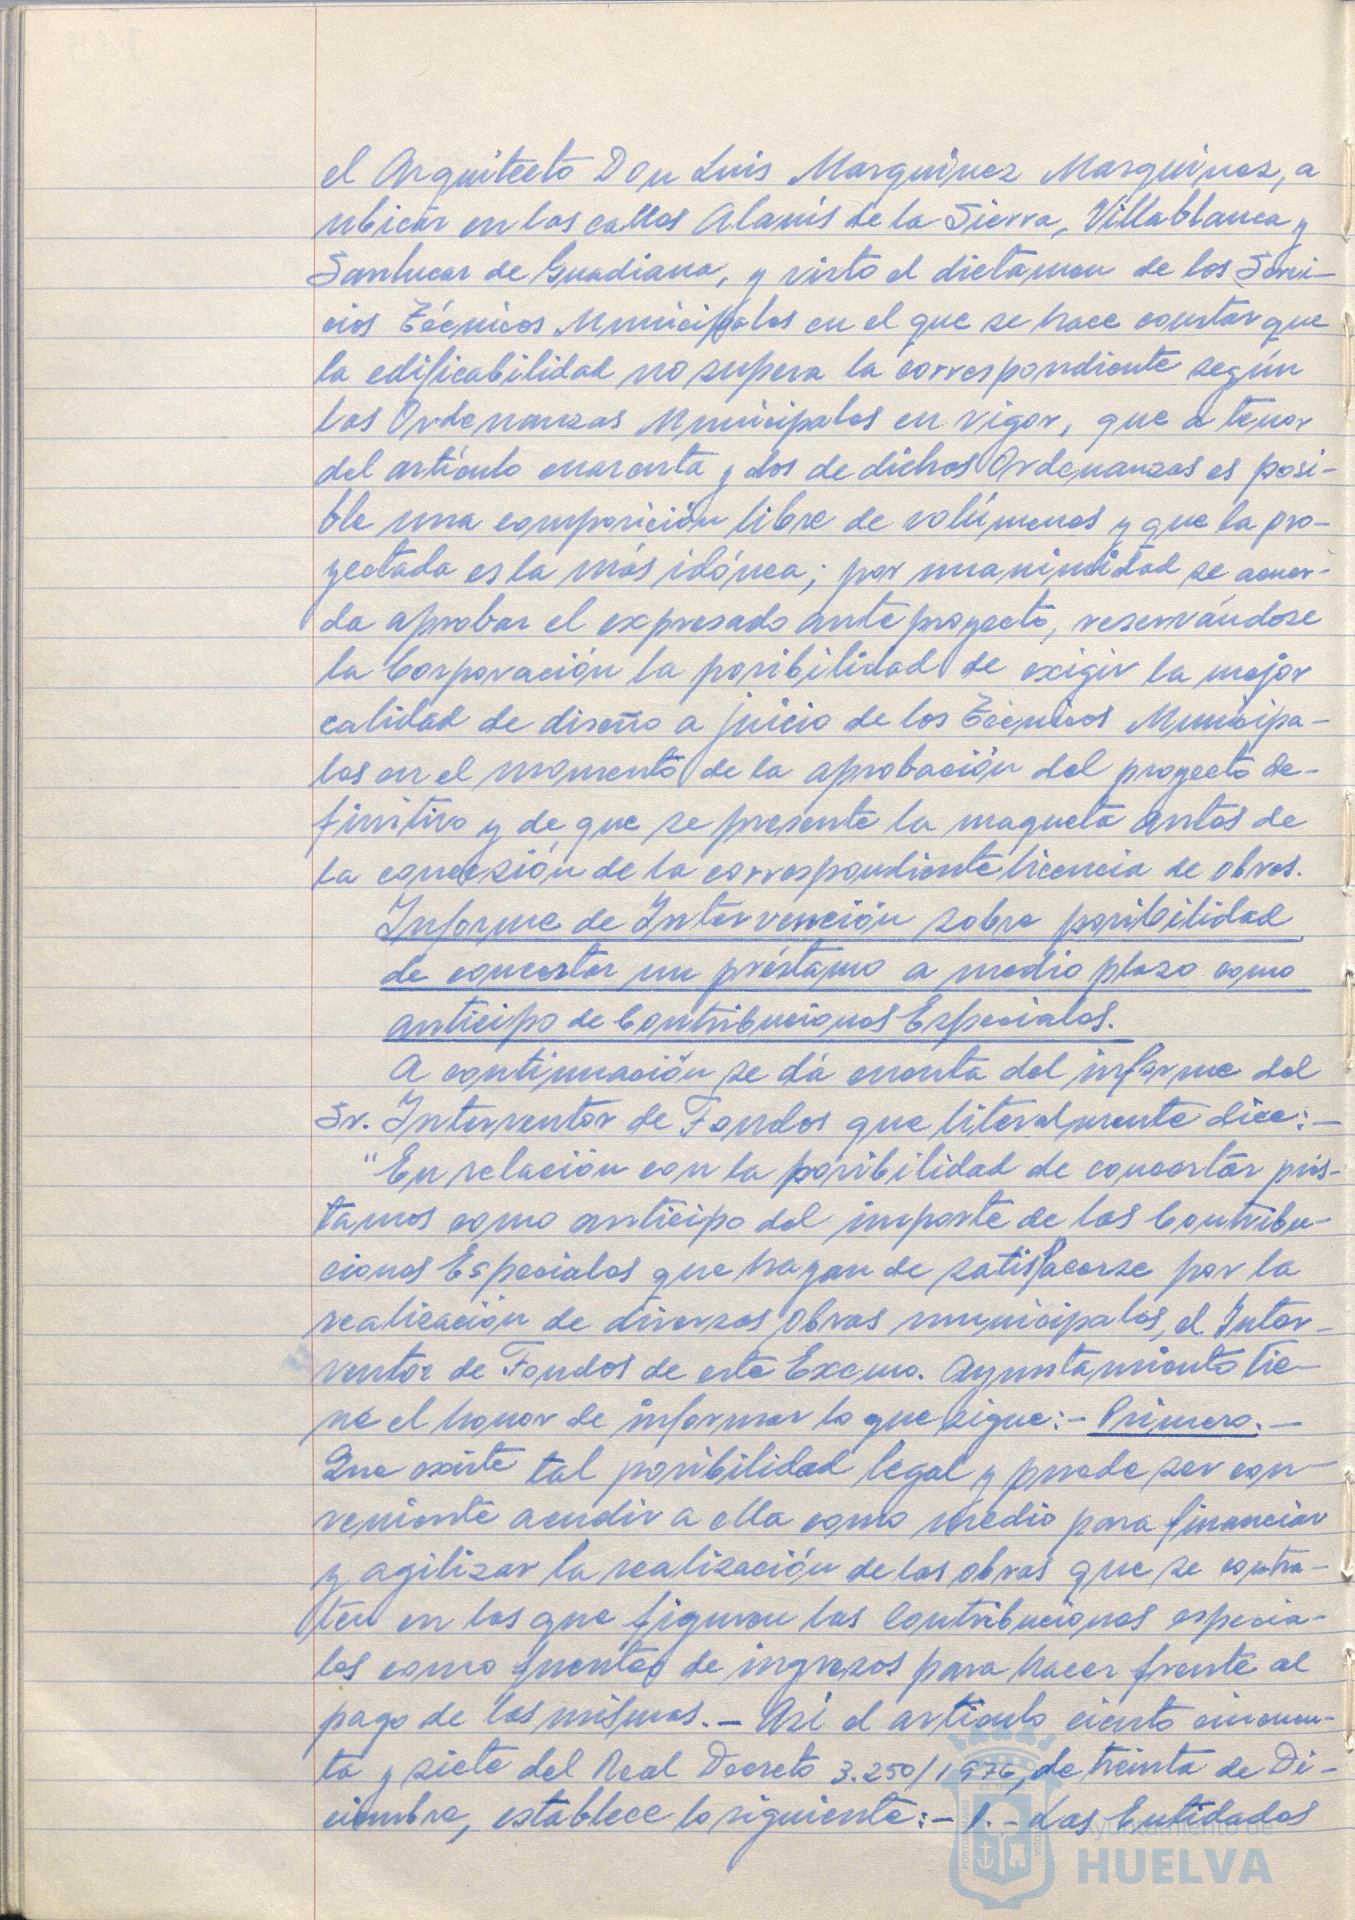 el Arquitecto Don Luis Marquínez Marquinez, a
ubicar en las calles Alanís de la Sierra, Villablanca y
Sanlucar de Guadiana, y visto el dictamen de los Servi-
cios Técnicos Municipales en el que se hace constar que
la edificabilidad no supera la correspondiente según
las Ordenanzas Municipales en vigor, que a tenor
del artículo cuarenta y dos de dichas Ordenanzas es posi-
ble una composición libre de volúmenes y que la pro-
yectada es la más idónea; por unanimidad se acuer-
da aprobar el expresado anteproyecto, reservándose
la Corporación la posibilidad de exigir la mejor
calidad de diseño a juicio de los Técnicos Municipa-
les en el momento de la aprobación del proyecto de-
finitivo y de que se presente la maqueta antes de
la concesión de la correspondiente licencia de obras.
Informe de Intervención sobre posibilidad
de concertar un préstamo a medio plazo como
anticipo de Contribuciones Especiales.
A continuación se dá cuenta del informe del
Sr. Interventor de Fondos que literalmente dice:-
"En relación con la posibilidad de concertar prés-
tamos como anticipo del importe de las Contribu-
ciones Especiales que hayan de satisfacerse por la
realización de diversas obras municipales, el Inter-
ventor de Fondos de este Excmo. Ayuntamiento tie-
ne el honor de informar lo que sigue:- Primero.-
Que existe tal posibilidad legal y puede ser con-
veniente acudir a ella como medio para financiar
y agilizar la realización de las obras que se contra-
ten en las que figuren las Contribuciones especia-
les como fuentes de ingresos para hacer frente al
pago de las mismas.- Así el artículo ciento cincuen-
ta y siete del Real Decreto 3.250/1976, de treinta de Di-
ciembre, establece lo siguiente:- 1.- Las Entidades
Ayuntamiento de
HUELVA